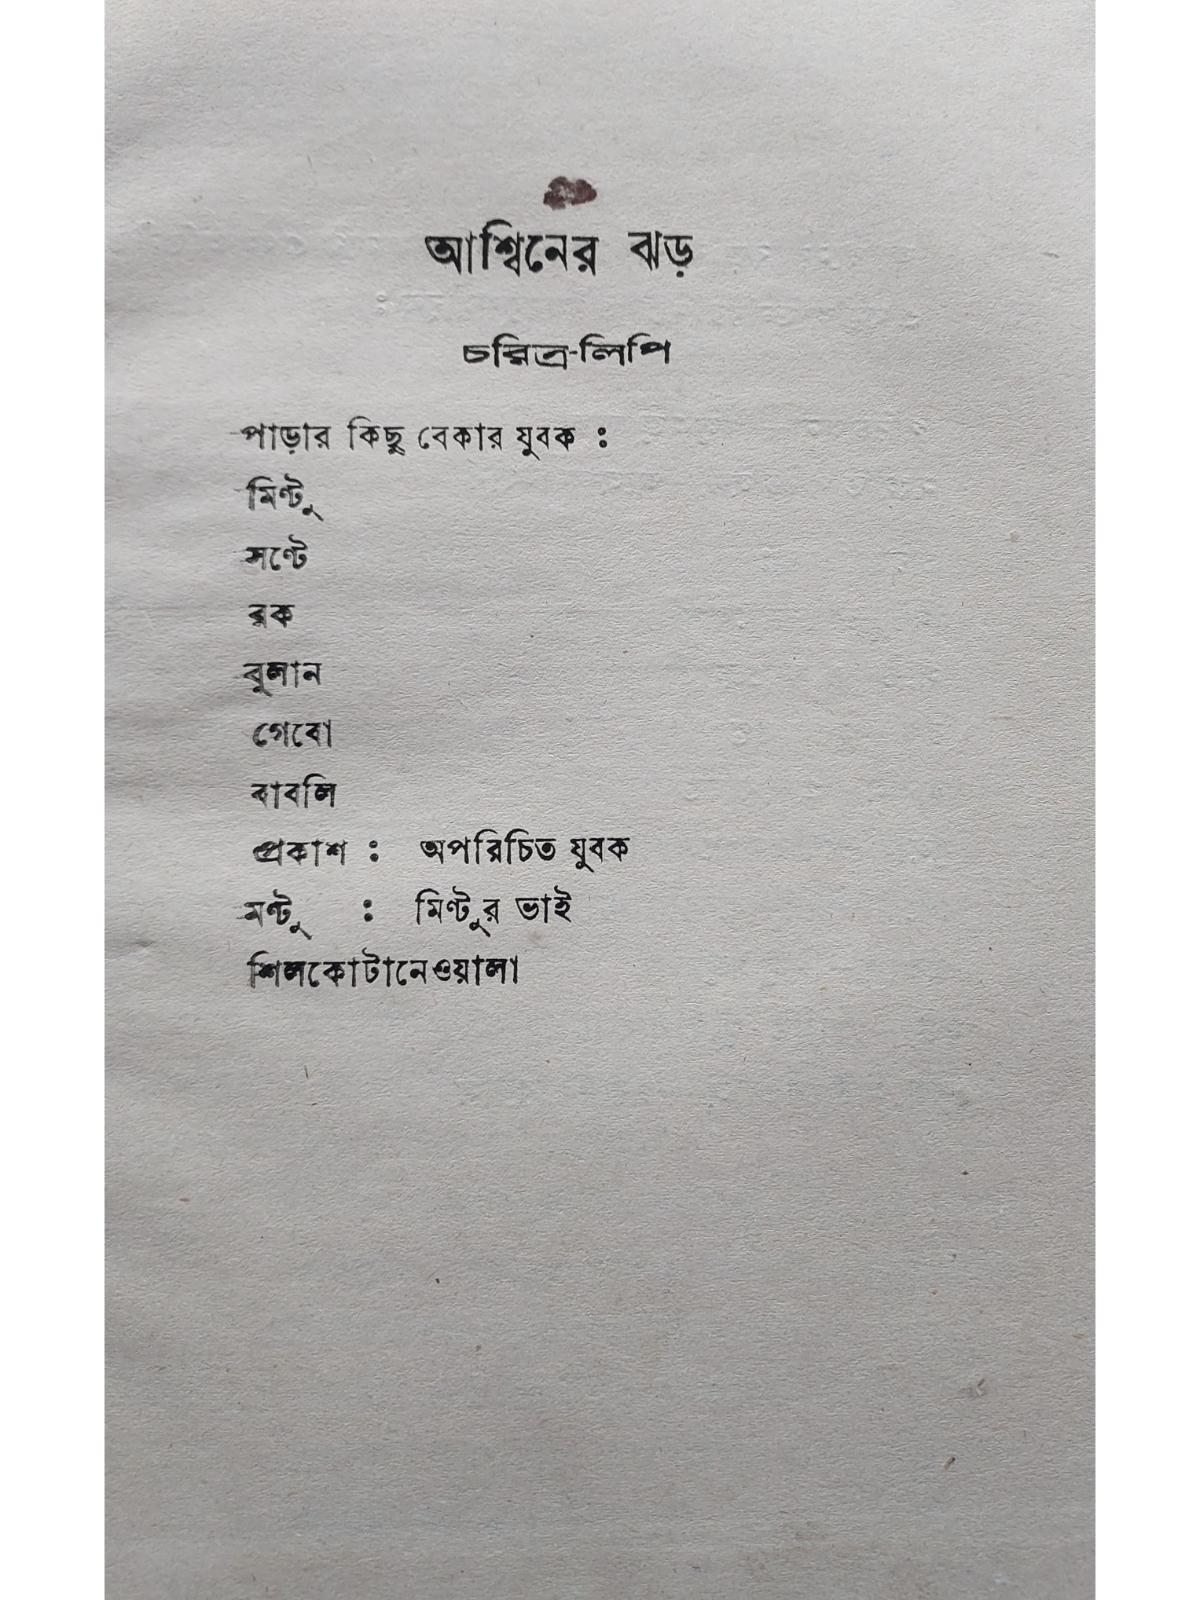 আশ্বিনের ঝড়
চরিত্র-লিপি
পাড়ার কিছু বেকার যুবক :
মিন্টু
সণ্টে
রক
বুলান
গেবো
বাবলি
প্রকাশ : অপরিচিত যুবক
মণ্টু : মিণ্টুর ভাই
শিলকোটানেওয়ালা